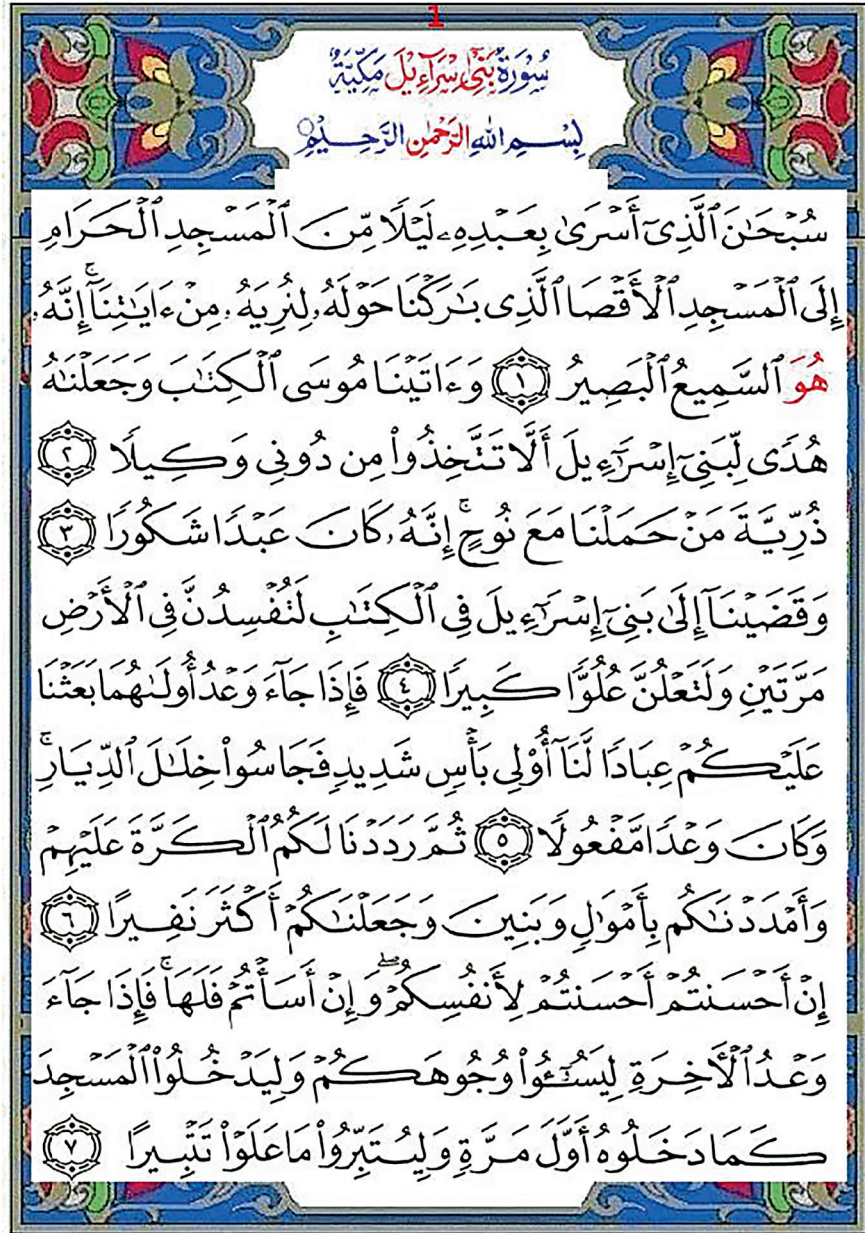 1
سُوْرَةُ بَنِیْۤ اِسْرَآءِيْلَ مَكِّيَّةٌ
بِسْمِ اللهِ الرَّحْمٰنِ الرَّحِيْمِ
سُبْحَٰنَ ٱلَّذِىٓ أَسْرَىٰ بِعَبْدِهِۦ لَيْلًا مِّنَ ٱلْمَسْجِدِ ٱلْحَرَامِ
إِلَى ٱلْمَسْجِدِ ٱلْأَقْصَا ٱلَّذِى بَٰرَكْنَا حَوْلَهُۥ لِنُرِيَهُۥ مِنْ ءَايَٰتِنَآ ۚ إِنَّهُۥ
هُوَ ٱلسَّمِيعُ ٱلْبَصِيرُ ١ وَءَاتَيْنَا مُوسَى ٱلْكِتَٰبَ وَجَعَلْنَٰهُ
هُدًى لِّبَنِىٓ إِسْرَٰٓءِيلَ أَلَّا تَتَّخِذُوا۟ مِن دُونِى وَكِيلًا ٢
ذُرِّيَّةَ مَنْ حَمَلْنَا مَعَ نُوحٍ ۚ إِنَّهُۥ كَانَ عَبْدًا شَكُورًا ٣
وَقَضَيْنَآ إِلَىٰ بَنِىٓ إِسْرَٰٓءِيلَ فِى ٱلْكِتَٰبِ لَتُفْسِدُنَّ فِى ٱلْأَرْضِ
مَرَّتَيْنِ وَلَتَعْلُنَّ عُلُوًّا كَبِيرًا ٤ فَإِذَا جَآءَ وَعْدُ أُولَىٰهُمَا بَعَثْنَا
عَلَيْكُمْ عِبَادًا لَّنَآ أُو۟لِى بَأْسٍ شَدِيدٍ فَجَاسُوا۟ خِلَٰلَ ٱلدِّيَارِ ۚ
وَكَانَ وَعْدًا مَّفْعُولًا ٥ ثُمَّ رَدَدْنَا لَكُمُ ٱلْكَرَّةَ عَلَيْهِمْ
وَأَمْدَدْنَٰكُم بِأَمْوَٰلٍ وَبَنِينَ وَجَعَلْنَٰكُمْ أَكْثَرَ نَفِيرًا ٦
إِنْ أَحْسَنتُمْ أَحْسَنتُمْ لِأَنفُسِكُمْ ۖ وَإِنْ أَسَأْتُمْ فَلَهَا ۚ فَإِذَا جَآءَ
وَعْدُ ٱلْأَخِرَةِ لِيَسُۥٓـُٔوا۟ وُجُوهَكُمْ وَلِيَدْخُلُوا۟ ٱلْمَسْجِدَ
كَمَا دَخَلُوهُ أَوَّلَ مَرَّةٍ وَلِيُتَبِّرُوا۟ مَا عَلَوْا۟ تَتْبِيرًا ٧